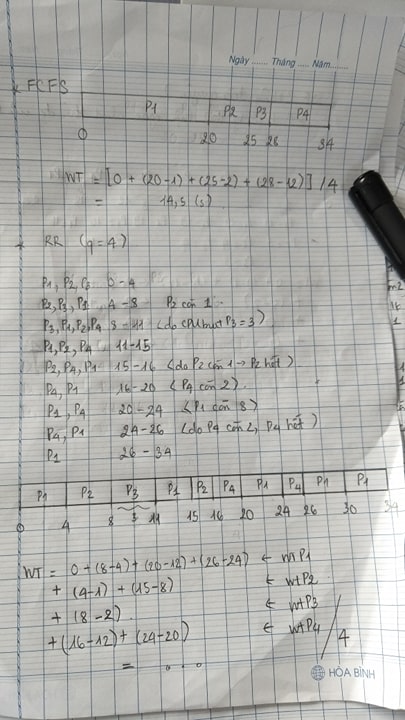 Ngày ....... Tháng ..... Năm........
* FCFS
P1 P2 P3 P4
0 20 25 28 34
WT = [0 + (20-1) + (25-2) + (28-12)] / 4
= 14,5 (s).
* RR (q=4)
P1, P2, P3 0-4
P2, P3, P1 4-8 P2 còn 1
P3, P1, P2, P4 8-11 (do CPU burst P3 = 3)
P1, P2, P4 11-15
P2, P4, P1 15-16 (do P2 còn 1 → P2 hết)
P4, P1 16-20 (P4 còn 2).
P1, P4 20-24 (P1 còn 8)
P4, P1 24-26 (do P4 còn 2, P4 hết)
P1 26-34
P1 P2 P3 P1 P2 P4 P1 P4 P1 P1
3
0 4 8 11 15 16 20 24 26 30 34
WT = 0 + (8-4) + (20-12) + (26-24) ← WTP1
+ (4-1) + (15-8) ← WTP2
+ (8-2) ← WTP3
+ (16-12) + (24-20) ← WTP4 / 4
= . . .
HÒA BÌNH